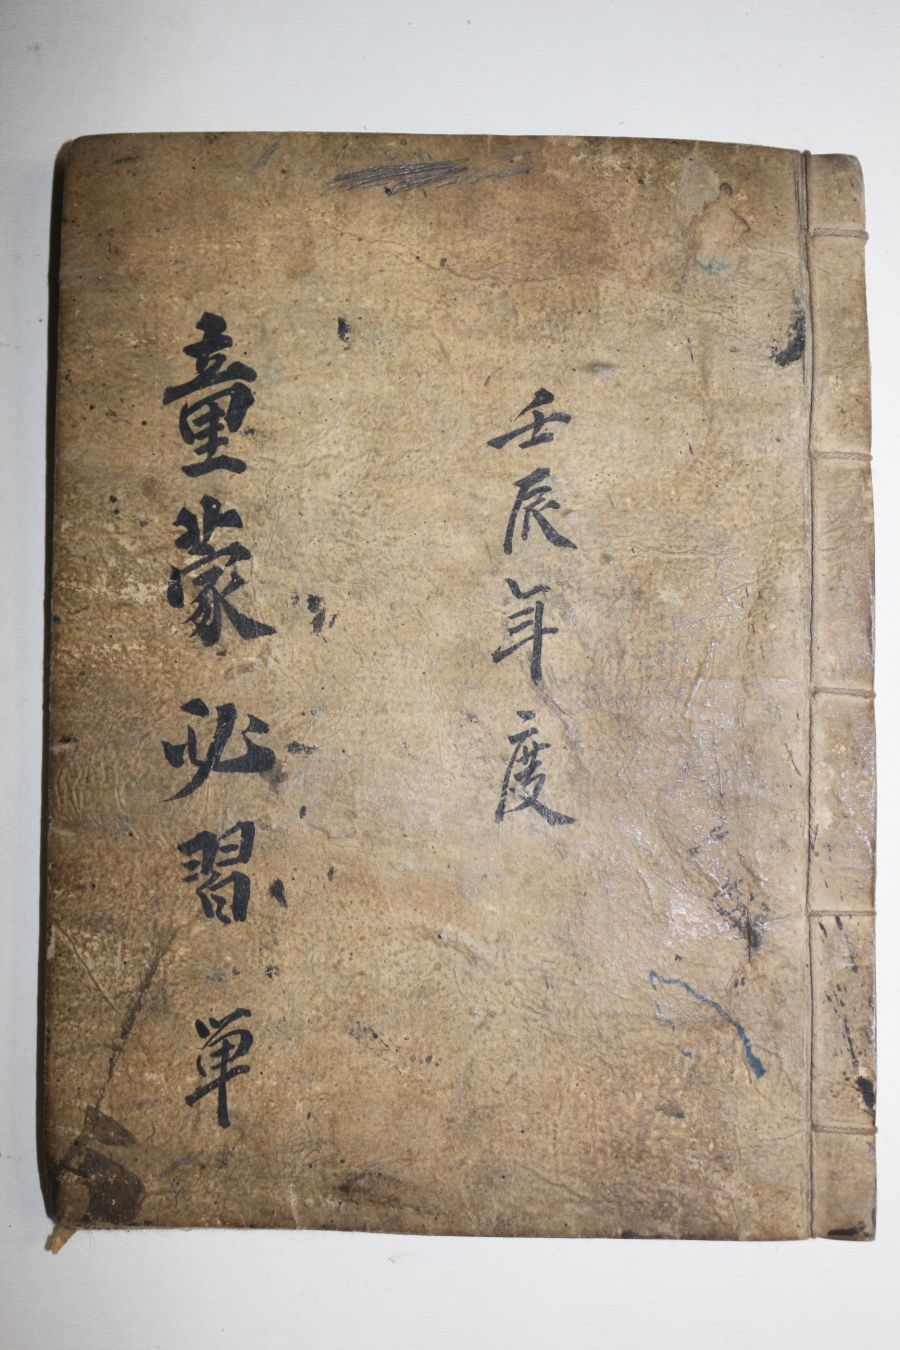 壬辰年度
童蒙必習 单